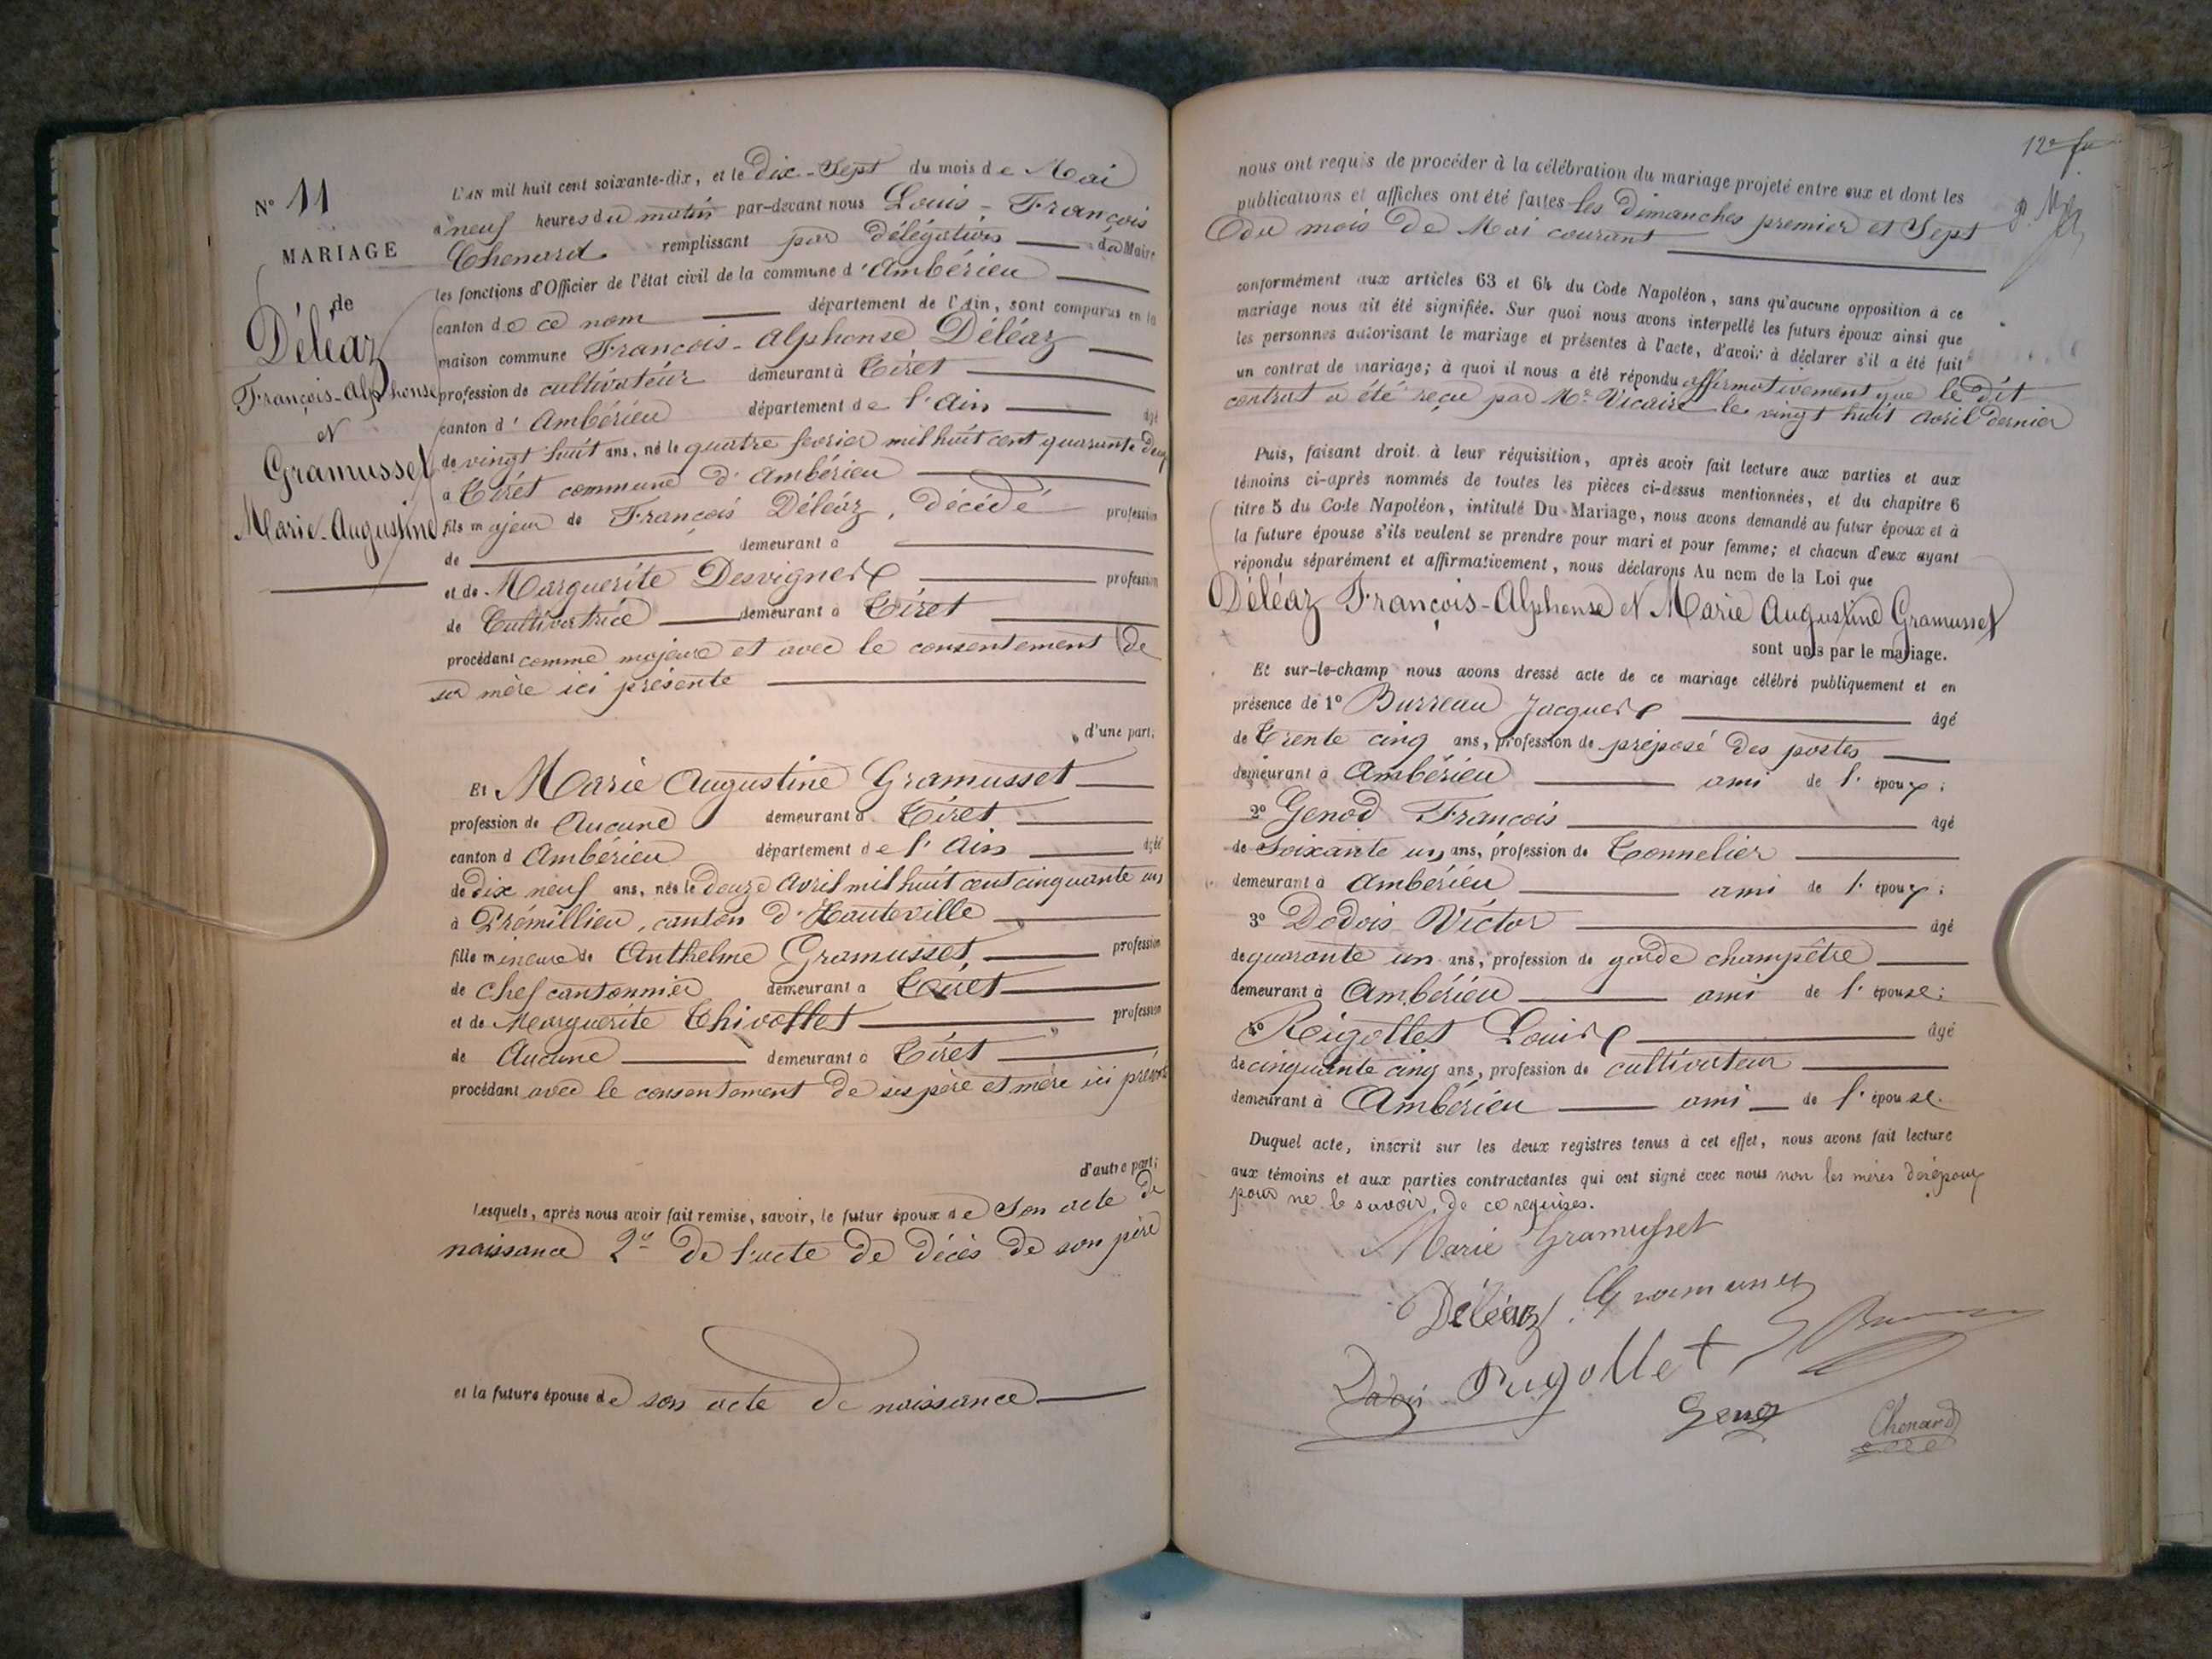 N° 11
MARIAGE
de
Déléaz
François-Alphonse
et
Gramusset
Marie-Augustine
L'AN mil huit cent soixante-dix, et le Dix-Sept du mois de Mai
à neuf heures du matin par-devant nous Louis-François
Chenard remplissant par délégation du Maire
les fonctions d'Officier de l'état civil de la commune d'Ambérieu
canton de ce nom département de l'Ain, sont comparus en la
maison commune François-Alphonse Déléaz
profession de cultivateur demeurant à Tiret
canton d'Ambérieu département de l'Ain âgé
de vingt huit ans, né le quatre fevrier mil huit cent quarante deux
à Tiret commune d'Ambérieu
fils majeur de François Déléaz, décédé profession
de demeurant à
et de Marguerite Desvignes profession
de Cultivatrice demeurant à Tiret
procédant comme majeur et avec le consentement de
sa mère ici présente
d'une part;
Et Marie Augustine Gramusset
profession de Aucune demeurant à Tiret
canton d Ambérieu département de l'Ain âgée
de dix neuf ans, née le Douze Avril mil huit cent cinquante un
à Prémillieu, canton d'Hauteville
fille mineure de Anthelme Gramusset, profession
de chef cantonnier demeurant à Tiret
et de Marguerite Thivollet profession
de Aucune demeurant à Tiret
procédant avec le consentement de ses père et mère ici présents
d'autre part;
Lesquels, après nous avoir fait remise, savoir, le futur époux de Son acte de
naissance 2° de l'acte de décès de son père
et la future épouse de son acte de naissance
12e
nous ont requis de procéder à la célébration du mariage projeté entre eux et dont les
publications et affiches ont été faites les dimanches premier et Sept
du mois de Mai courant
conformément aux articles 63 et 64 du Code Napoléon, sans qu'aucune opposition à ce
mariage nous ait été signifiée. Sur quoi nous avons interpellé les futurs époux ainsi que
les personnes autorisant le mariage et présentes à l'acte, d'avoir à déclarer s'il a été fait
un contrat de mariage; à quoi il nous a été répondu affirmativement que le dit
contrat a été reçu par Me Vicaire le vingt huit avril dernier
Puis, faisant droit à leur réquisition, après avoir fait lecture aux parties et aux
témoins ci-après nommés de toutes les pièces ci-dessus mentionnées, et du chapitre 6
titre 5 du Code Napoléon, intitulé Du Mariage, nous avons demandé au futur époux et à
la future épouse s'ils veulent se prendre pour mari et pour femme; et chacun d'eux ayant
répondu séparément et affirmativement, nous déclarons Au nom de la Loi que
Déléaz François-Alphonse et Marie Augustine Gramusset
sont unis par le mariage.
Et sur-le-champ nous avons dressé acte de ce mariage célébré publiquement et en
présence de 1° Burreau Jacques âgé
de Trente cinq ans, profession de préposé des postes
demeurant à Ambérieu ami de l'époux;
2° Genod François âgé
de Soixante un ans, profession de Tonnelier
demeurant à Ambérieu ami de l'époux;
3° Dodois Victor âgé
de quarante un ans, profession de garde champêtre
demeurant à Ambérieu ami de l'épouse;
4° Rigollet Louis âgé
de cinquante cinq ans, profession de cultivateur
demeurant à Ambérieu ami de l'épouse.
Duquel acte, inscrit sur les deux registres tenus à cet effet, nous avons fait lecture
aux témoins et aux parties contractantes qui ont signé avec nous non les mères des époux
pour ne le savoir de ce requises.
Marie Gramusset
Déléaz Gramusset
Dodois Rigollet
Genod Chenard